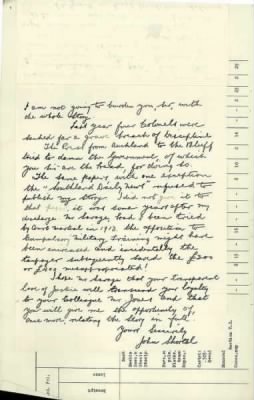 I am not going to burden you, Sir, with
the whole story.
Last year four Colonels were
sacked for a grave breach of discipline
The Press from Auckland to the Bluff
tried to damn the Government, of which
you Sir are the head, for doing so.
The same papers, with one exception
the "Southland Daily News" refused to
publish my story. I had not given it to
that paper, it was some years after my
discharge Mr Savage, had I been tried
by Court Martial in 1913, the opposition to
Compulsory Military Training might have
been increased and incidentally the
taxpayer subsequently saved the £300
or £400 misappropriated!
I hope Mr Savage that your transparent
love of Justice will transcend your loyalty
to your Colleague Mr Jones and that
you will give me the opportunity of,
once more, relating the story in full.
Yours Sincerely
John